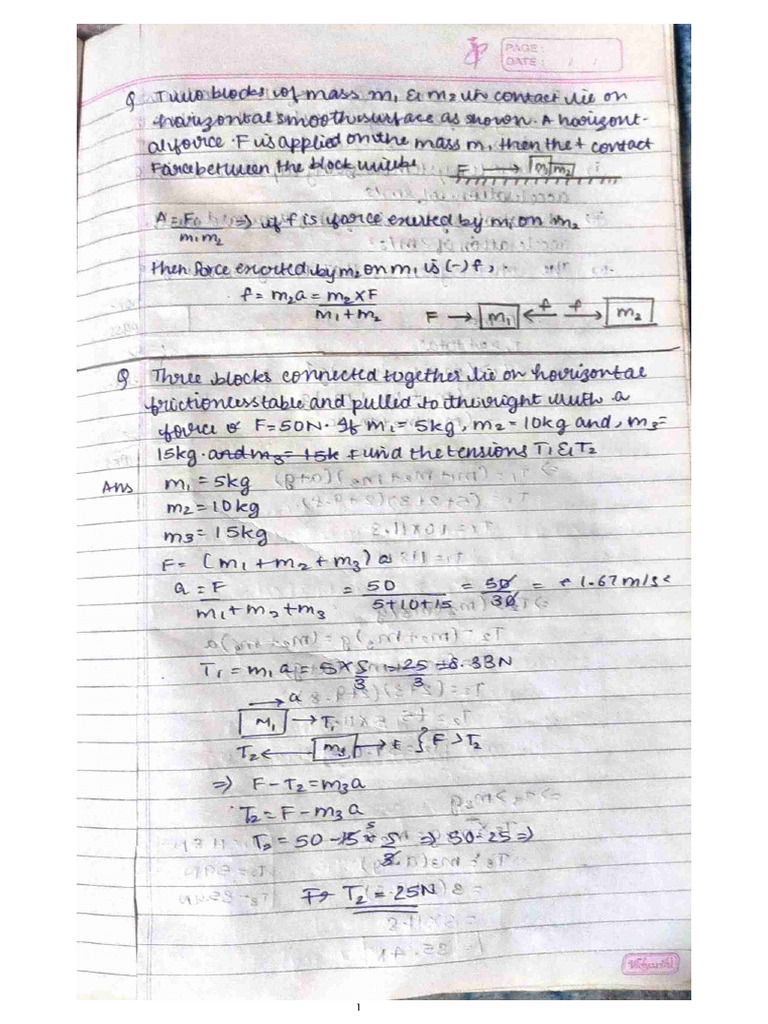 PAGE:
DATE: / /
Q Two blocks of mass m1 & m2 in contact lie on
horizontal smooth surface as shown. A horizont-
al force F is applied on the mass m1 then the contact
Force between the block will be F → m1 m2
A = F ⇒ if f is force exerted by m1 on m2
m1 m2
then force exerted by m2 on m1 is (-) f,
f = m2a = m2 x F
m1 + m2
F → m1 ← f f → m2
Q. Three blocks connected together lie on horizontal
frictionless table and pulled to the right with a
force of F = 50N. If m1 = 5kg, m2 = 10kg and, m3 =
15kg. and m3 = 15k find the tensions T1 & T2
Ans m1 = 5kg
m2 = 10kg
m3 = 15kg
F = (m1 + m2 + m3) a
a = F = 50 = 50 = 1.67 m/s
m1 + m2 + m3 5+10+15 30
T1 = m1 a = 5 x 5 = 25 = 8.33N
3 3
→ a
M1 → T1
T2 ← m3 → F { F > T2
⇒ F - T2 = m3a
T2 = F - m3a
T2 = 50 - 15 x 5 ⇒ 50 - 25 ⇒
3
T2 = 25N
Vidyarthi
1